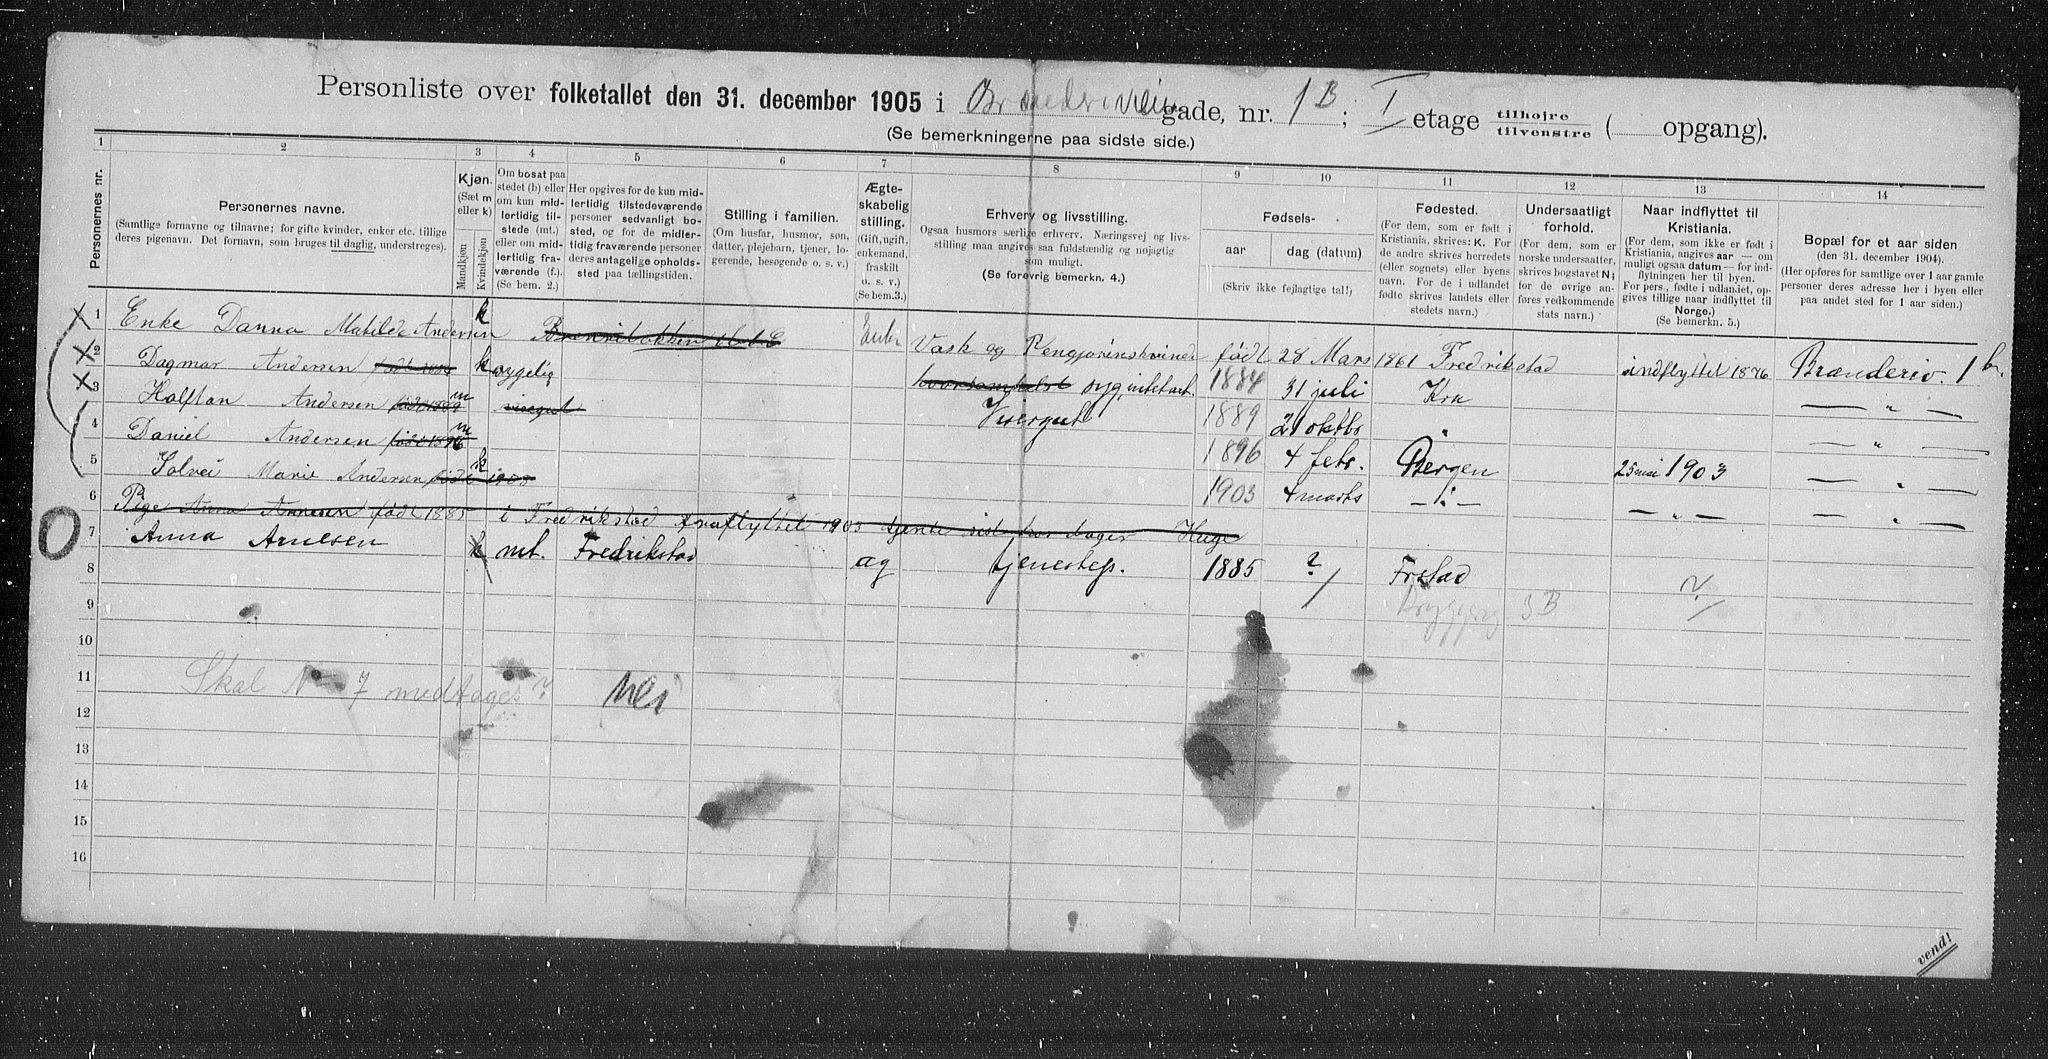 Personliste over folketallet den 31. december 1905 i gade, nr. 1 B; I etage tilhøjre tilvenstre ( opgang).
(Se bemerkningerne paa sidste side.)
1 2 3 4 5 6 7 8 9 10 11 12 13 14
Personernes nr.
Personernes navne.
(Samtlige fornavne og tilnavne; for gifte kvinder, enker etc. tillige
deres pigenavn. Det fornavn, som bruges til daglig, understreges).
Kjøn.
(Sæt m
eller k)
Mandkjøn
Kvindekjøn
Om bosat paa
stedet (b) eller
om kun mid-
lertidig til-
stede (mt.)
eller om mid-
lertidig fra-
værende (f.).
(Se bem. 2.)
Her opgives for de kun mid-
lertidig tilstedeværende
personer sedvanligt bo-
sted, og for de midler-
tidig fraværende personer
deres antagelige opholds-
sted paa tællingstiden.
Stilling i familien.
(Om husfar, husmor, søn,
datter, plejebarn, tjener, lo-
gerende, besøgende o. s. v.)
Ægte-
skabelig
stilling.
(Gift, ugift,
enkemand,
fraskilt
o. s. v.)
(Se bem.3.)
Erhverv og livsstilling.
Ogsaa husmors særlige erhverv. Næringsvej og livs-
stilling maa angives saa fuldstændig og nøjagtig
som muligt.
(Se forøvrig bemerkn. 4.)
Fødsels-
aar
dag (datum)
(Skriv ikke fejlagtige tal!)
Fødested.
(For dem, som er født i
Kristiania, skrives: K. For
de andre skrives herredets
(eller sognets) eller byens
navn. For de i udlandet
fødte skrives landets eller
stedets navn.)
Undersaatligt
forhold.
(For dem, som er
norske undersaatter,
skrives bogstavet N;
for de øvrige an-
føres vedkommende
stats navn.)
Naar indflyttet til
Kristiania.
(For dem, som ikke er født i
Kristiania, angives aar — om
muligt ogsaa datum — for ind-
flytningen her til byen.
For pers., fødte i udlandet, op-
gives tillige naar indflyttet til
Norge.)
(Se bemerkn. 5.)
Bopæl for et aar siden
(den 31. december 1904).
(Her opføres for samtlige over 1 aar gamle
personer deres adresse her i byen eller
paa andet sted for 1 aar siden.)
1 Enke Danna Matilde Andersen k Enke Vask og født 28 Mars 1861 Fredrikstad indflyttet 1876 1 b.
2 Dagmar Andersen k sygelig syg, intet arb. 1884 31 juli Kra — " —
3 Halfdan Andersen m Visergut 1889 21 oktbr " — " —
4 Daniel Andersen født 1896 m 1896 4 febr. Bergen 25 mai 1903
5 Solvei Marie Andersen født 1903 k 1903 4 marts — " — — " — — " —
6 Pige Anna født 1885 i Fredrikstad fraflyttet 1905 tjente sidst dager
7 Anna Arnesen k mt. Fredrikstad ag tjenestep. 1885 ? Frstad ?
8
3 B
9
10
11
Skal No 7 medtages? Nei
12
13
14
15
16
vend!